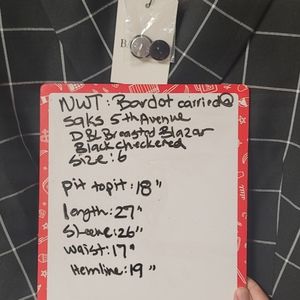 B
NWT: Bardot carried@
saks 5th Avenue
DBL Breasted Blazar
Black Checkered
Size: 6
Pit to pit: 18"
length: 27"
Sleeve: 26"
Waist: 17"
Hemline: 19"